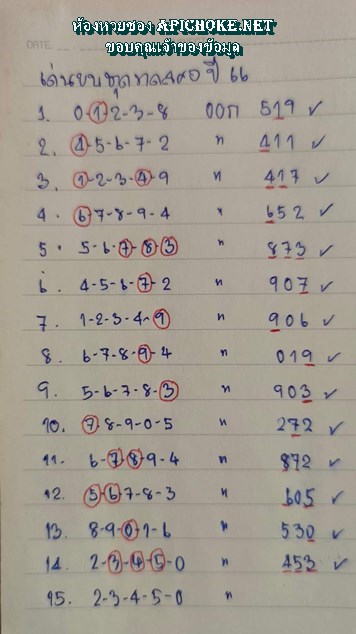 ห้องหวยซอง APICHOKE.NET
ขอบคุณเจ้าของข้อมูล
DATE
เด่นบนชุดตลอดปี 66
1. 0-1-2-3-8 ออก 519 ✓
2. 4-5-6-7-2 " 411 ✓
3. 1-2-3-4-9 " 417 ✓
4. 6-7-8-9-4 " 652 ✓
5. 5-6-7-8-3 " 873 ✓
6. 4-5-6-7-2 " 907 ✓
7. 1-2-3-4-9 " 906 ✓
8. 6-7-8-9-4 " 019 ✓
9. 5-6-7-8-3 " 903 ✓
10. 7-8-9-0-5 " 272 ✓
11. 6-7-8-9-4 " 872 ✓
12. 5-6-7-8-3 " 605 ✓
13. 8-9-0-1-6 " 530 ✓
14. 2-3-4-5-0 " 453 ✓
15. 2-3-4-5-0 "